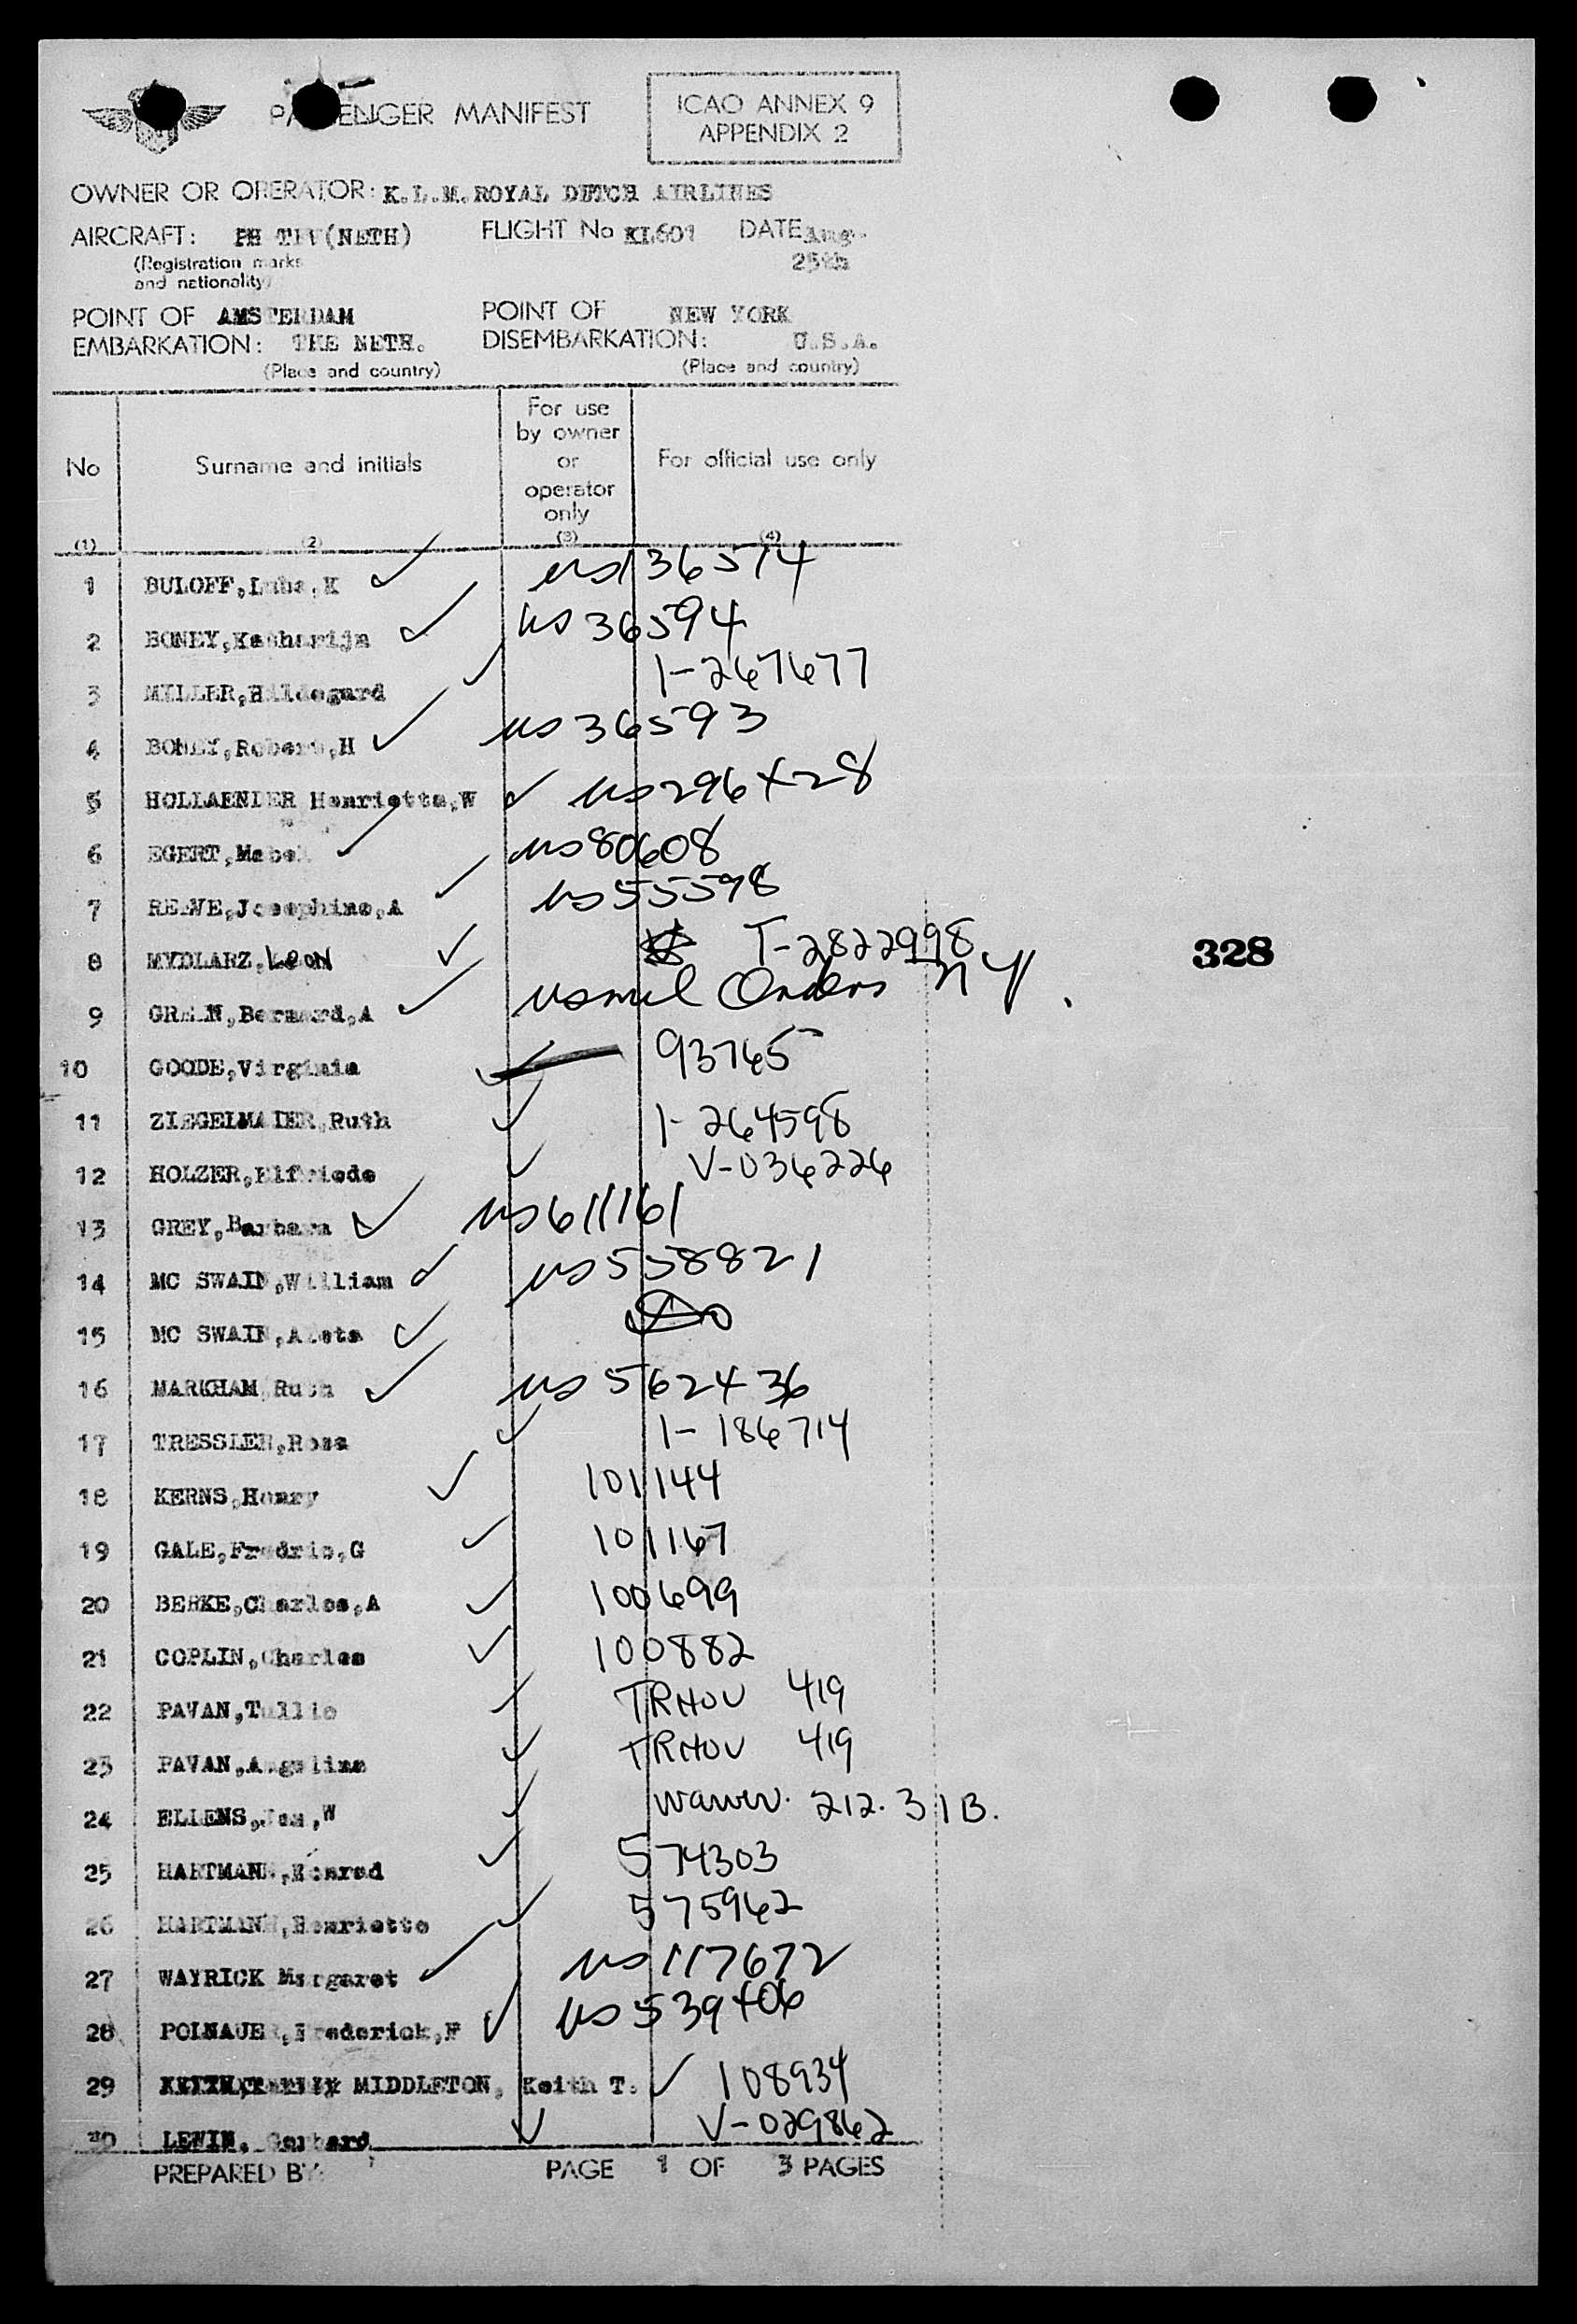 PASSENGER MANIFEST
ICAO ANNEX 9
APPENDIX 2
OWNER OR OPERATOR: K.L.M. ROYAL DUTCH AIRLINES
AIRCRAFT: PH (NETH) FLIGHT No KL601 DATE Aug.
(Registration marks 25th
and nationality)
POINT OF AMSTERDAM POINT OF NEW YORK
EMBARKATION: THE NETH. DISEMBARKATION: U.S.A.
(Place and country) (Place and country)
No Surname and initials For use by owner or operator only For official use only
(1) (2) (3) (4)
1 BULOFF, Luba, K ✓ us136574
2 BONEY, ✓ us 36594
3 MILLER, Hildegard ✓ 1-267677
4 BONEY, Robert, H ✓ us 36593
5 HOLLAENDER Henriette, W ✓ us 296428
6 EGERT, Mabel ✓ us 80608
7 Josephine, A ✓ us 55598
8 MYDLARZ, Leon ✓ T-2822998
9 Bernard, A ✓ us mil Orders N Y.
10 GOODE, Virginia ✓ 93765
11 ZIEGELMAIER, Ruth ✓ 1-264598
12 HOLZER, Elfriede ✓ V-036226
13 GREY, Barbara ✓ us 611161
14 MC SWAIN, William ✓ us 558821
15 MC SWAIN, Aleta ✓
16 MARKHAM Ruth ✓ us 562436
17 TRESSLER, Rosa ✓ 1-186714
18 KERNS, Henry ✓ 101144
19 GALE, Fredric, G ✓ 101167
20 BERKE, Charles, A ✓ 100699
21 COPLIN, Charles ✓ 100882
22 PAVAN, Tullio ✓ TRHOV 419
23 PAVAN, Angelina ✓ TRHOV 419
24 ELIENS, Jan, W ✓ waiver. 212.31B.
25 HARTMANN, Konrad ✓ 574303
26 HARTMANN, Henriette ✓ 575962
27 WAYRICK Margaret ✓ us 117672
28 POLNAUER, Frederick, F ✓ us 539406
29 MIDDLETON, Keith T. ✓ 108934
30 LEWIN, Gerhard ✓ V-029862
PREPARED BY: PAGE 1 OF 3 PAGES
328